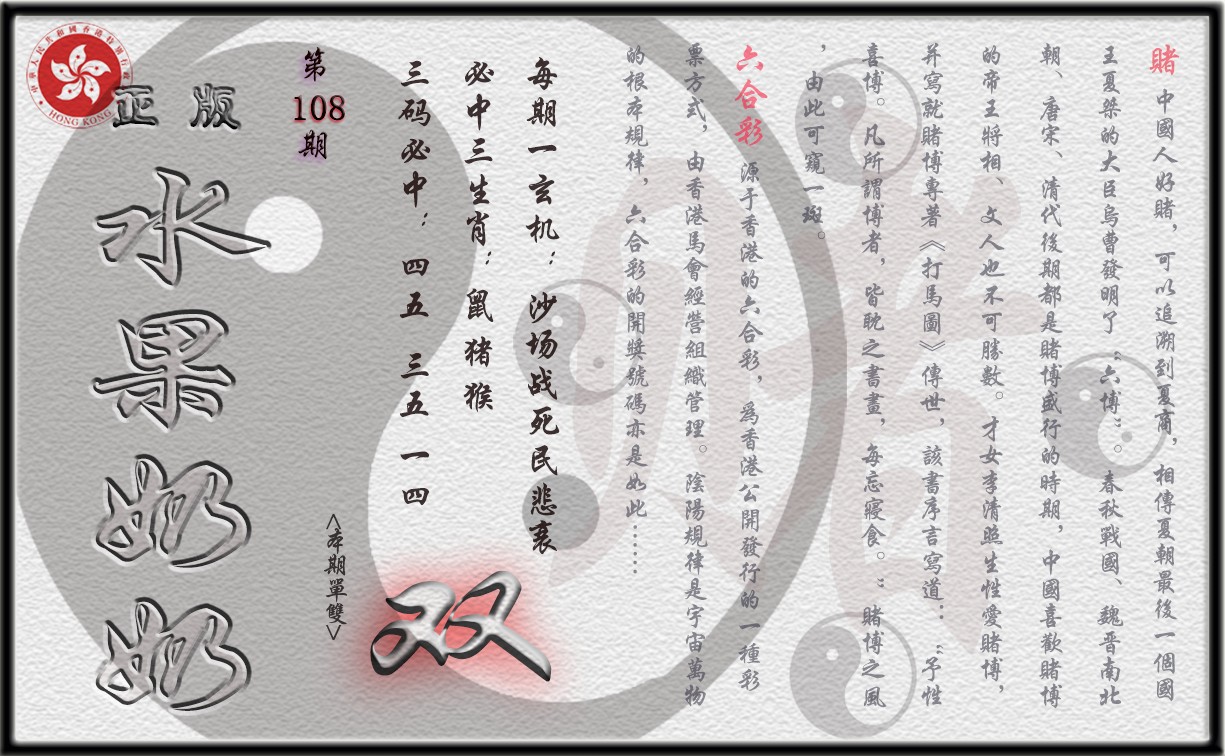 賭 中國人好賭，可以追溯到夏商，相傳夏朝最後一個國
王夏桀的大臣烏曹發明了“六博”。春秋戰國、魏晉南北
朝、唐宋、清代後期都是賭博盛行的時期，中國喜歡賭博
的帝王將相、文人也不可勝數。才女李清照生性愛賭博，
并寫就賭博專著《打馬圖》傳世，該書序言寫道：“予性
喜博。凡所謂博者，皆耽之書畫，每忘寢食。”賭博之風
，由此可窺一斑。
六合彩 源于香港的六合彩，爲香港公開發行的一種彩
票方式，由香港馬會經營組織管理。陰陽規律是宇宙萬物
的根本規律，六合彩的開獎號碼亦是如此……
每期一玄机：沙场战死民悲哀
必中三生肖：鼠猪猴
三码必中：四五 三五 一四
双
<本期單雙>
第108期
正版
水果奶奶
HONG KONG